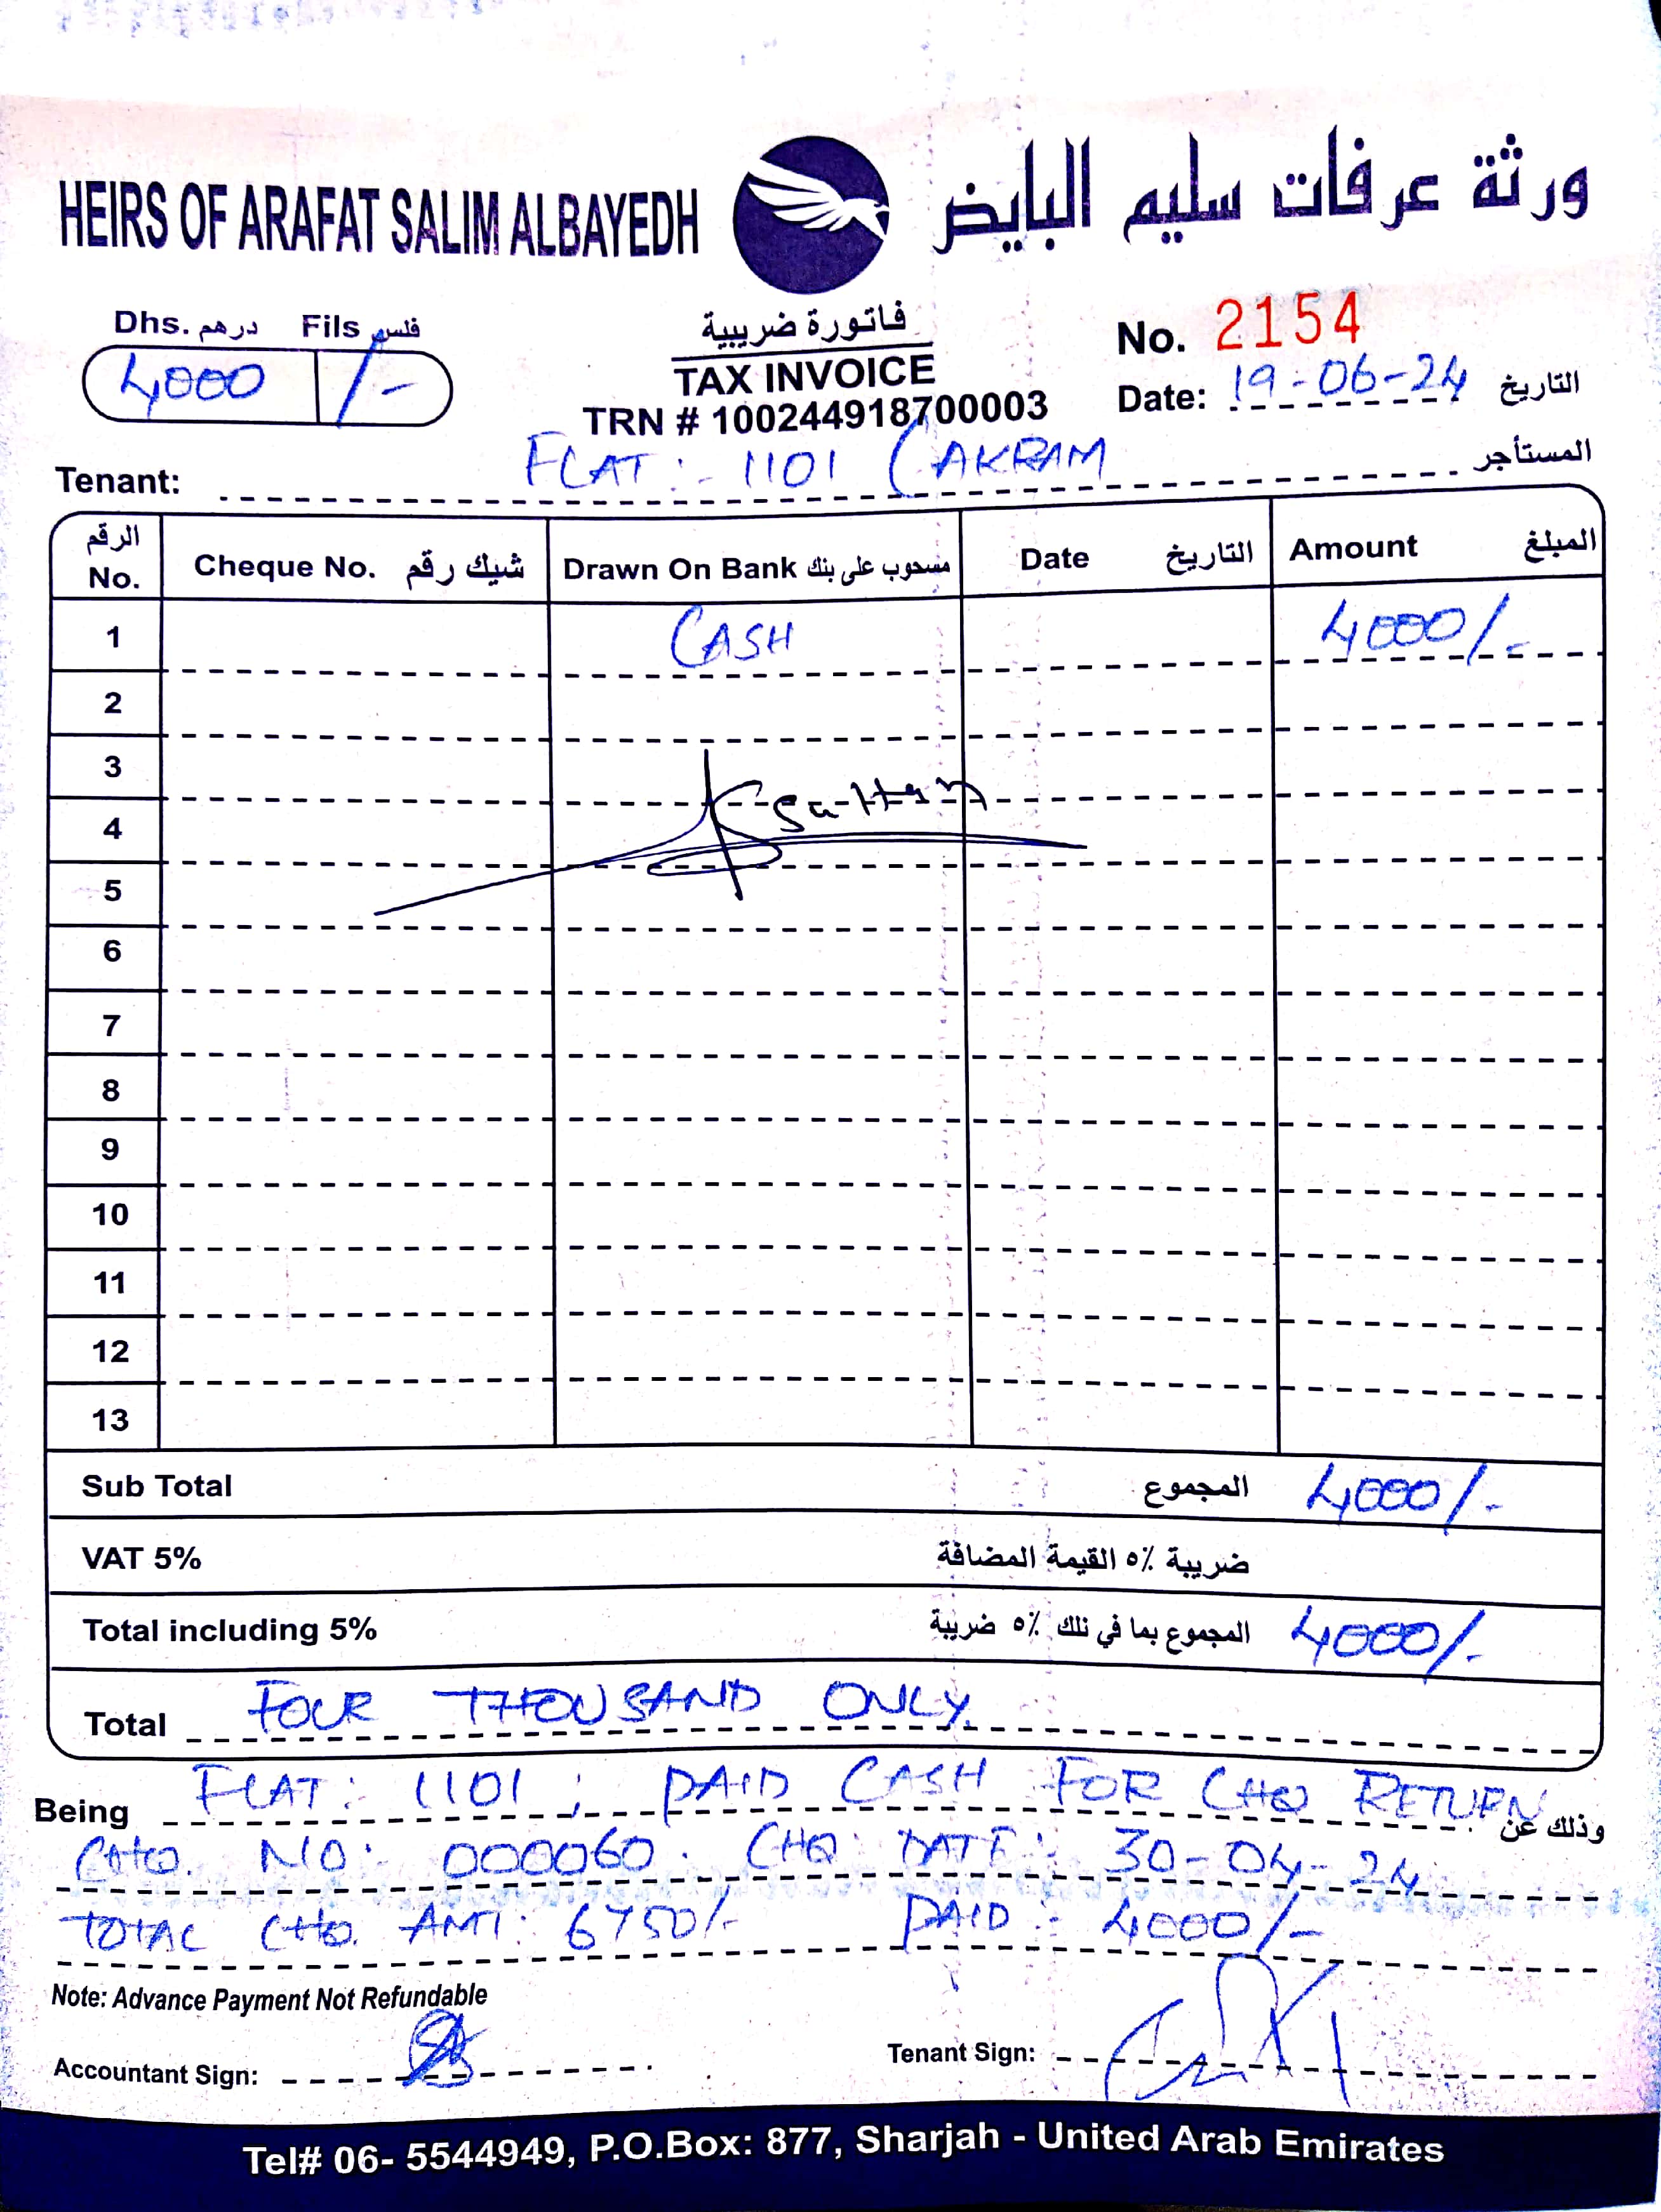 HEIRS OF ARAFAT SALIM ALBAYEDH ورثة عرفات سليم البايض
Dhs. درهم Fils فلس
4,000 /-
فاتورة ضريبية
TAX INVOICE
TRN # 100244918700003
No. 2154
Date: 19-06-24 التاريخ
Tenant: FLAT:- 1101 (AKRAM المستأجر
الرقم No. Cheque No. شيك رقم Drawn On Bank مسحوب على بنك Date التاريخ Amount المبلغ
1 CASH 4000/-
2
3
4 Sultan
5
6
7
8
9
10
11
12
13
Sub Total المجموع 4,000/-
VAT 5% ضريبة ٥٪ القيمة المضافة
Total including 5% المجموع بما في ذلك ٥٪ ضريبة 4000/-
Total FOUR THOUSAND ONLY.
Being FLAT: 1101 ; PAID CASH FOR CHQ RETURN وذلك عن
CHQ. NO: 000060. CHQ DATE: 30-04-24
TOTAL CHQ. AMT: 6750/- PAID: 4000/-
Note: Advance Payment Not Refundable
Accountant Sign: Tenant Sign:
Tel# 06- 5544949, P.O.Box: 877, Sharjah - United Arab Emirates